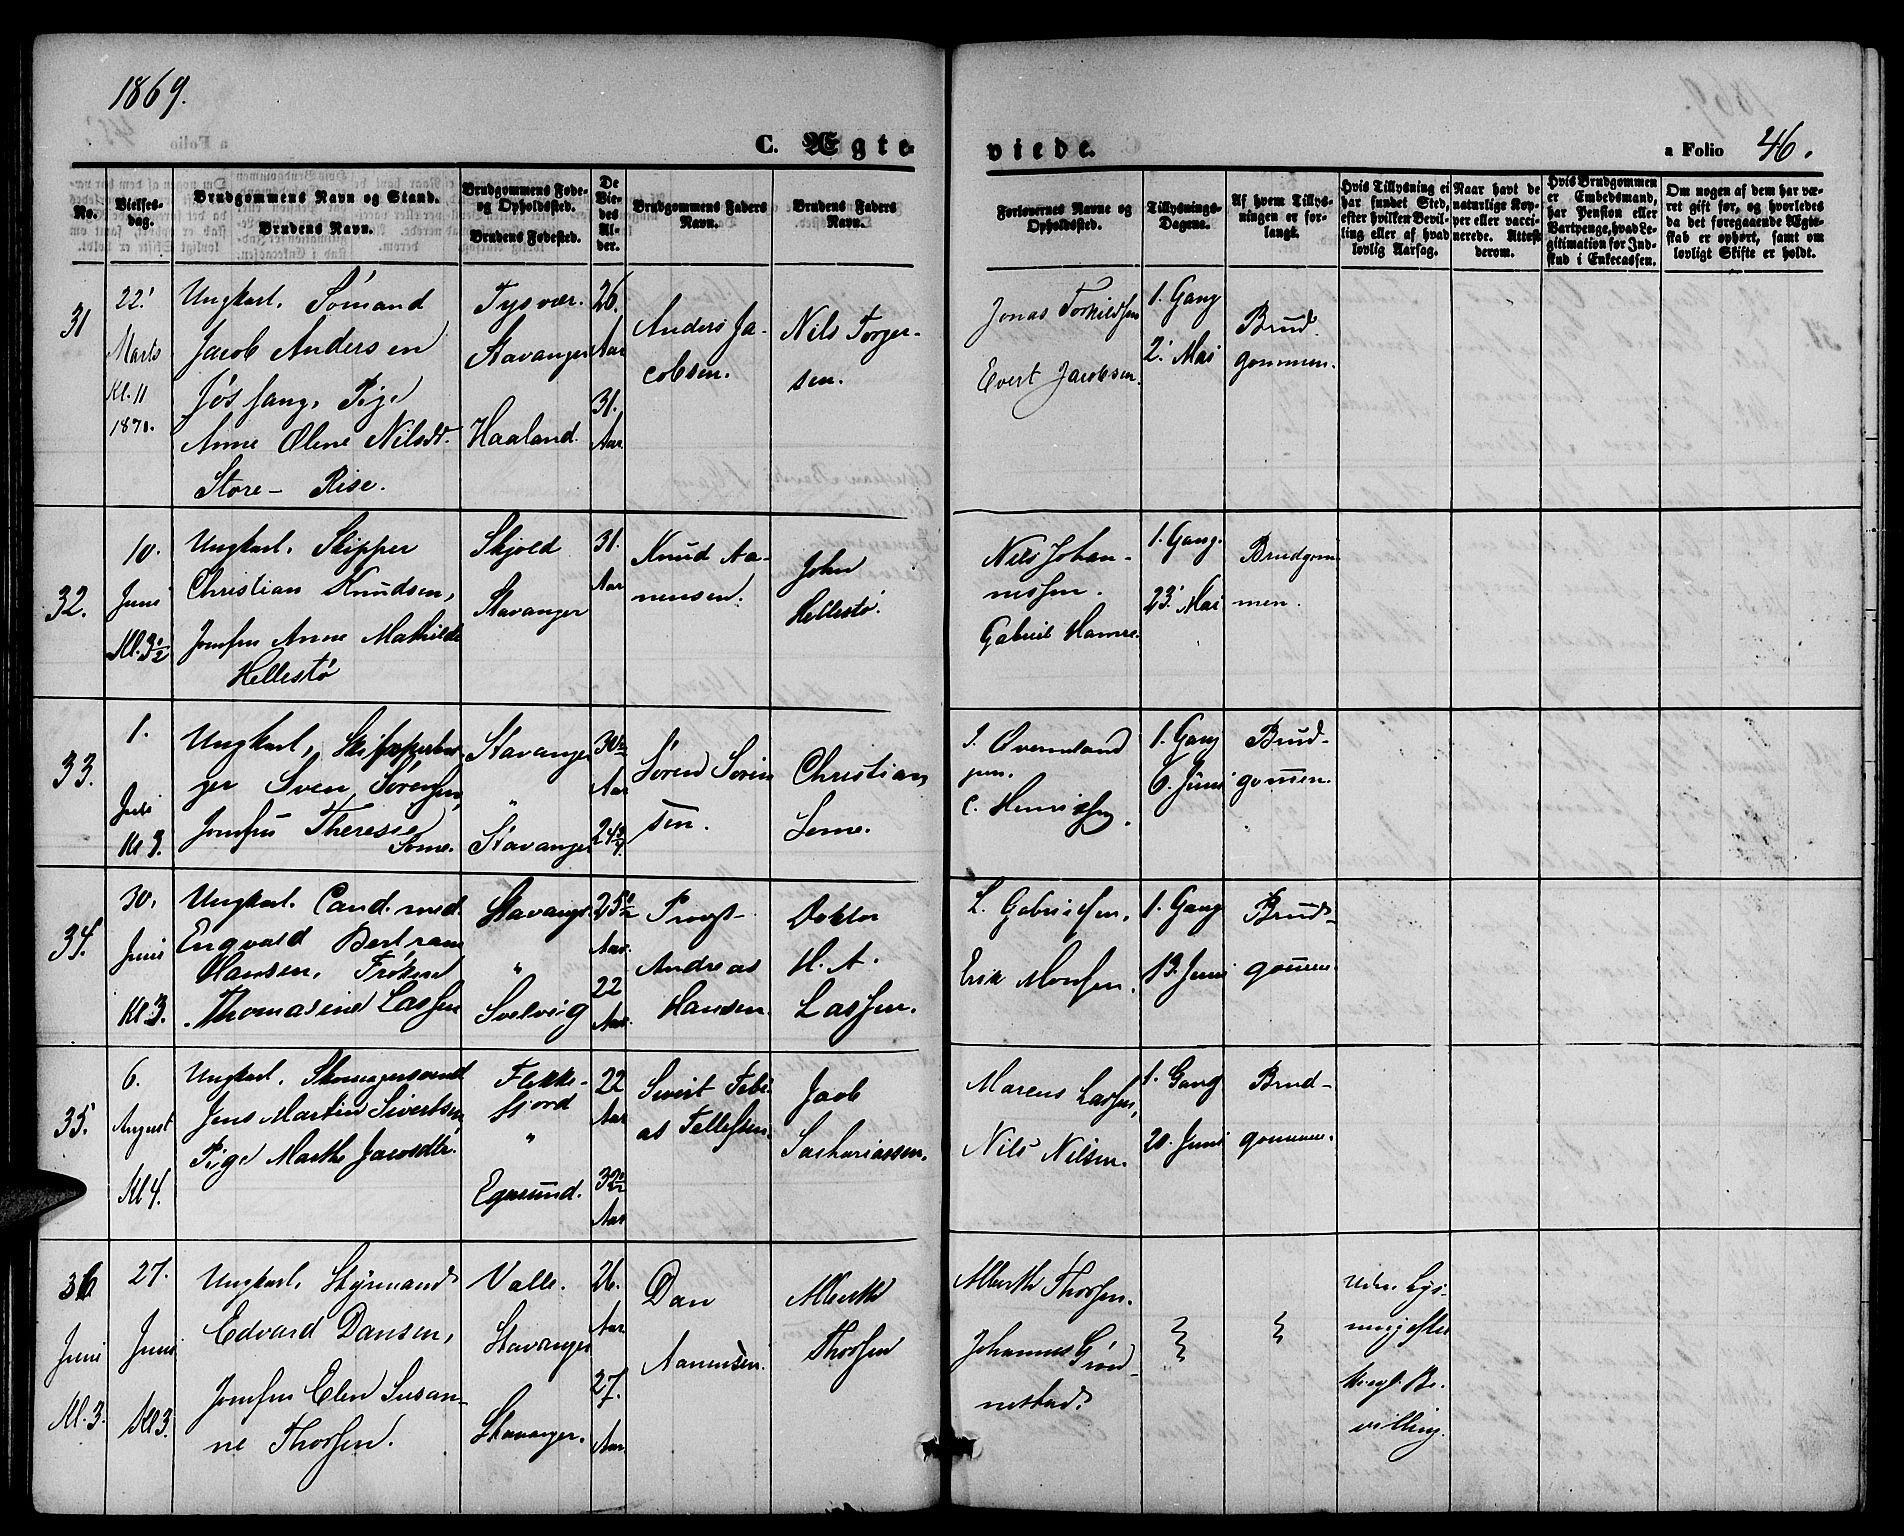 1869.
C. Ægte-
viede.
a Folio 46.
No.
Vielses-
dag.
Brudgommens Navn og Stand.
Brudens Navn.
Brudgommens Føde-
og Opholdssted.
Brudens Fødested.
De
Vie-
des
Al-
der.
Brudgommens Faders
Navn.
Brudens Faders
Navn.
Forlovernes Navne og
Opholdssted.
Tillysnings-
Dagene.
Af hvem Tillys-
ningen er for-
langt.
Hvis Tillysning ei
har fundet Sted,
efter hvilken Bevil-
ling eller af hvad
lovlig Aarsag.
Naar havt de
naturlige Kop-
per eller vacci-
nerede. Attest
derom.
Hvis Brudgommen
er Embedsmand,
har Pension eller
Vartpenge, hvad Le-
gitimation for Ind-
skud i Enkecassen.
Om nogen af dem har væ-
ret gift før, og hvorledes
da det foregaaende Ægte-
skab er ophørt, samt om
lovligt Skifte er holdt.
31
22'
Marts
Kl. 11
1870.
Ungkarl, Sömand
Jacob Andersen
Jösfang, Pige
Anne Olene Nilsdt.
Store- Rise.
Tysvær.
Stavanger
Haaland.
26.
Aar
31.
Aar
Anders Ja-
cobsen.
Nils Torger-
sen.
Jonas Torkildsen
Evert Jacobsen.
1. Gang
2' Mai
Brud-
gommen.
32.
10.
Juni
Kl. 3½
Ungkarl, Skipper
Christian Knudsen,
Jomfru Anne Mathilde
Hellestø
Skjold
Stavanger
31.
Aar
Knud Aa-
nensen.
John
Hellestø.
Nils Johan-
nissen.
Gabriel Hamre.
1. Gang.
23' Mai
Brudgom
men.
33.
1.
Juli
Kl 3.
Ungkarl,
ger Sven Sørensen,
Jomfru Therese
Some.
Stavanger
"
Stavanger
30½
Aar
24¾
Sören Sören
sen.
Christian
Some.
C. Henrichsen.
1. Gang
6. Juni
Brud-
gommen.
34.
30.
Juni
Kl. 3.
Ungkarl. Cand. med.
Engvald Bertram
Hansen, Frøken
Thomasine Lassen
Stavanger
"
Svelvig
25½
Aar.
22
Aar.
Provst
Andreas
Hansen.
Doktor
H. A.
Lassen.
L. Gabrielsen.
Erik Monsen.
1. Gang
13. Juni
Brud-
gommen
35.
6.
August
Kl 4.
Ungkarl, Skomagersvend
Jens Martin Sivertsen,
Pige Marthe Jacobsdtr.
Flekke-
fjord
"
Egersund.
22
Aar
32½
Aar
Sivert Tobi-
as Tellefsen.
Jacob
Sachariassen.
Marcus Larsen,
Nils Nilsen.
1. Gang
20. Juni
Brud-
gommen.
36
Juni
Kl. 3.
27.
Juni
Kl 3.
Ungkarl, Styrmand
Edvard Dansen,
Jomfru Elen Susan-
ne Thorsen.
Valle.
Stavanger
Stavanger.
26.
Aar
27.
Aar
Dan
Aanensen.
Alberth
Thorsen
Alberth Thorsen.
Johannes Grön-
nestad.
Uden Lys-
ning efter
Kongl. Be-
villing.